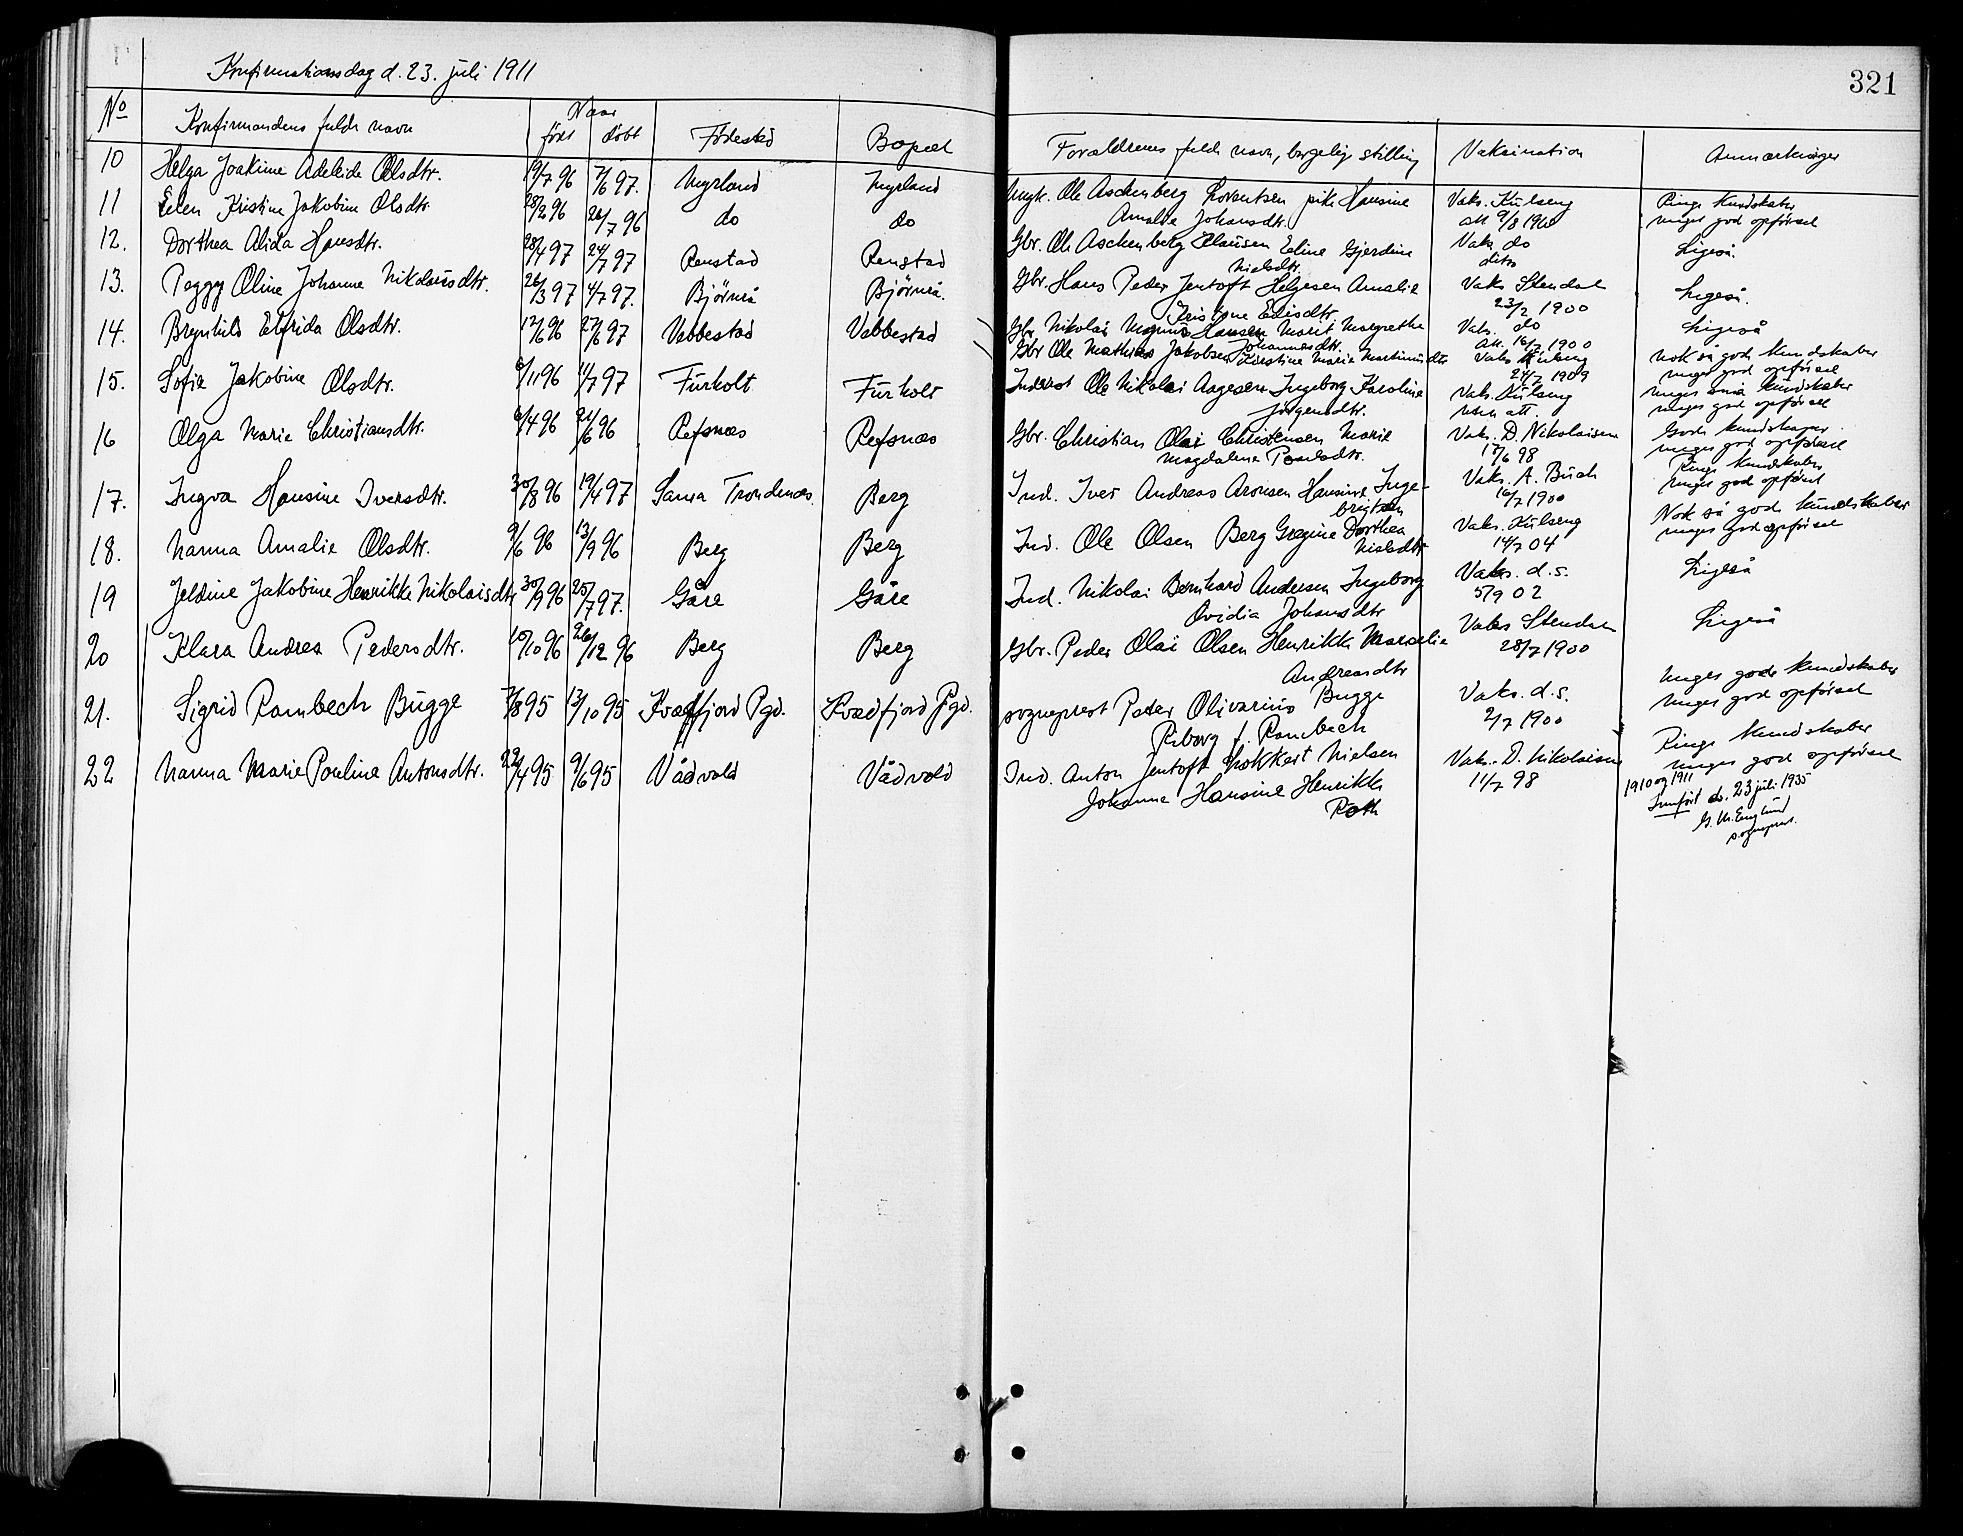 321
Konfirmationsdag d. 23. juli 1911
No Konfirmandens fulde navn Naar født døbt Fødested Bopæl Forældrenes fulde navn, borgelig stilling Vaksination Anmærkninger
10 Helga Joakime Adeleide Olsdtr. 19/7 96 7/6 97. Myrland Myrland Ungk. Ole Aschenberg Lorentsen pike Hansine Amalie Johansdtr. Vaks. Kulseng att 9/8 1900 Ringe kundskaber meget god opførsel
11 Elen Kristine Jakobine Olsdtr. 28/2 96 26/7 96 do do Gbr. Ole Aschenberg Clausen Edine Gjerdine Nielsdtr. Vaks. do ditto Ligeså.
12. Dorthea Alida Hansdtr. 28/4 97 24/7 97 Renstad Renstad Gbr. Hans Peder Jentoft Helgesen Amalie Kristine Edisdtr. Vaks Stendal 23/2 1900 Ligeså.
13. Peggy Oline Johanne Nikolaisdtr. 26/3 97 4/7 97. Bjørnrå Bjørnrå. Gbr. Nikolai Magnus Hansen Marit Margrethe Johannesdtr. Vaks. do att. 16/7 1900 Ligeså
14. Brynhild Elfrida Olsdtr. 12/6 96 27/6 97 Vebbestad Vebbestad Gbr Ole Mathias Jakobsen Kirstine Marie Martinusdtr Vaks Kulseng 24/7 1909 nok så gode kundskaber meget god opførsel
15. Sofie Jakobine Olsdtr. 6/11 96 11/7 97 Furholt Furholt Inderst Ole Nikolai Aagesen Ingeborg Karoline Jørgensdtr. Vaks. Kulseng uten att. meget små kundskaber meget god opførsel
16 Olga Marie Christiansdtr. 6/4 96 24/6 96 Refsnæs Refsnæs Gbr. Christian Olai Christensen Marie Magdalena Poulsdtr. Vaks. D. Nikolaisen 17/6 98 Gode kundskaper. meget god opførsel
17. Ingva Hansine Iversdtr. 30/8 96 19/4 97 Sama Trondenæs Berg Ind. Iver Andreas Aronsen Hansine Inge-brigtsen Vaks. A. Buch 16/7 1900 Ringe kundskaber meget god opførsel
18. Nanna Amalie Olsdtr. 9/6 96 13/9 96 Berg Berg Ind. Ole Olsen Berg Gregine Dorthea Nielsdtr Vaks. Kulseng 14/7 04 Nok så gode kundskaber meget god opførsel
19 Jeldine Jakobine Henrikke Nikolaisdtr 30/9 96 25/7 97. Gåre Gåre Ind. Nikolai Bernhard Andersen Ingeborg Ovidia Johansdtr Vaks. d.s. 5/9 02 Ligeså
20 Klara Andrea Pedersdtr. 10/10 96 26/12 96 Berg Berg Gbr. Peder Olai Olsen Henrikke Marselie Andreasdtr Vaks Stendal 28/7 1900 Ligeså
21. Sigrid Rambech Bugge 7/8 95 13/10 95 Kvæfjord Pgd. Kvædfjord Pgd. sogneprest Peder Olivarius Bugge Riborg f. Rambech Vaks. d.s. 2/7 1900 meget gode kundskaber meget god opførsel
22 Nanna Marie Pouline Antonsdtr. 22/4 95 9/6 95 Vådvold Vådvold Ind. Anton Jentoft Lokkert Nielsen Johanne Hansine Henrikke Roth Vaks. D. Nikolaisen 11/7 98 Ringe kundskaber meget god opførsel
1910 og 1911
Innført d. 23 juli 1935
G. M. Englund
sogneprest.